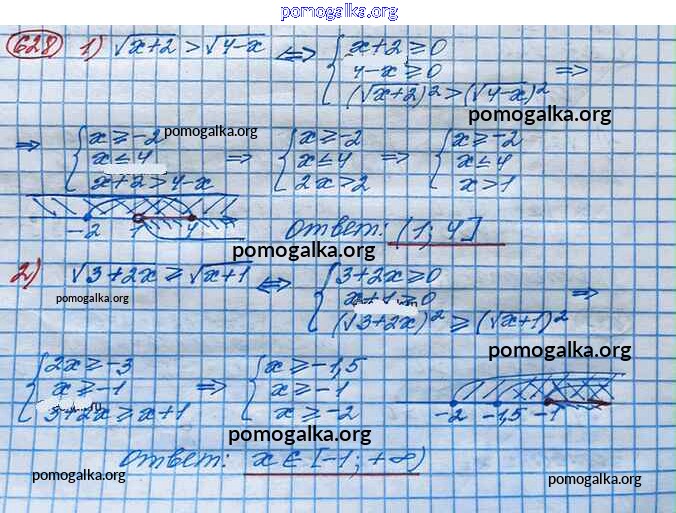 pomogalka.org
628 1) √x+2 > √4-x ⇔ { x+2 ≥ 0
4-x ≥ 0 ⇒
(√x+2)² > (√4-x)²
pomogalka.org
⇒ { x ≥ -2 pomogalka.org ⇒ { x ≥ -2 ⇒ { x ≥ -2
x ≤ 4 x ≤ 4 x ≤ 4
x+2 > 4-x 2x > 2 x > 1
-2 1 4 ответ: (1; 4]
pomogalka.org
2) √3+2x ≥ √x+1 ⇔ { 3+2x ≥ 0
pomogalka.org x+1 ≥ 0 ⇒
(√3+2x)² ≥ (√x+1)²
pomogalka.org
{ 2x ≥ -3 ⇒ { x ≥ -1,5
x ≥ -1 x ≥ -1
3+2x ≥ x+1 x ≥ -2
-2 -1,5 -1
pomogalka.org
ответ: x ∈ [-1; +∞)
pomogalka.org pomogalka.org